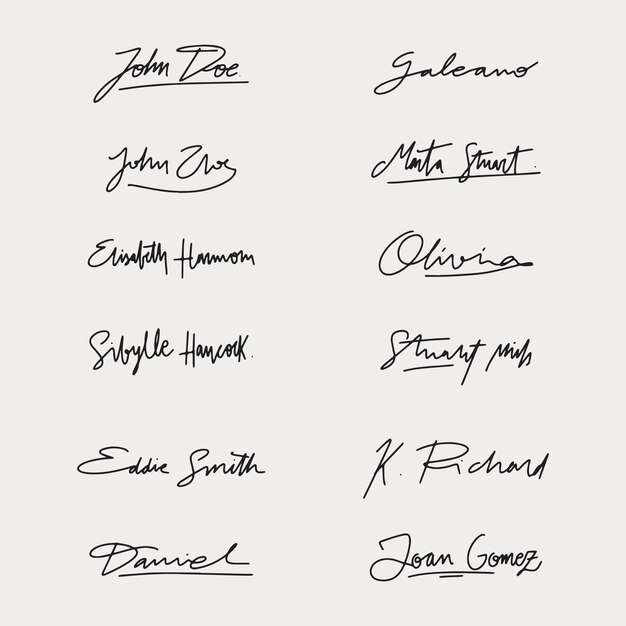 John Doe.
Galeano
John
Marta Stuart.
Elisabeth Hammom
Olivina
Sibylle Haycock.
Stuart
Eddie Smith
K. Richard
Daniel
Joan Gomez